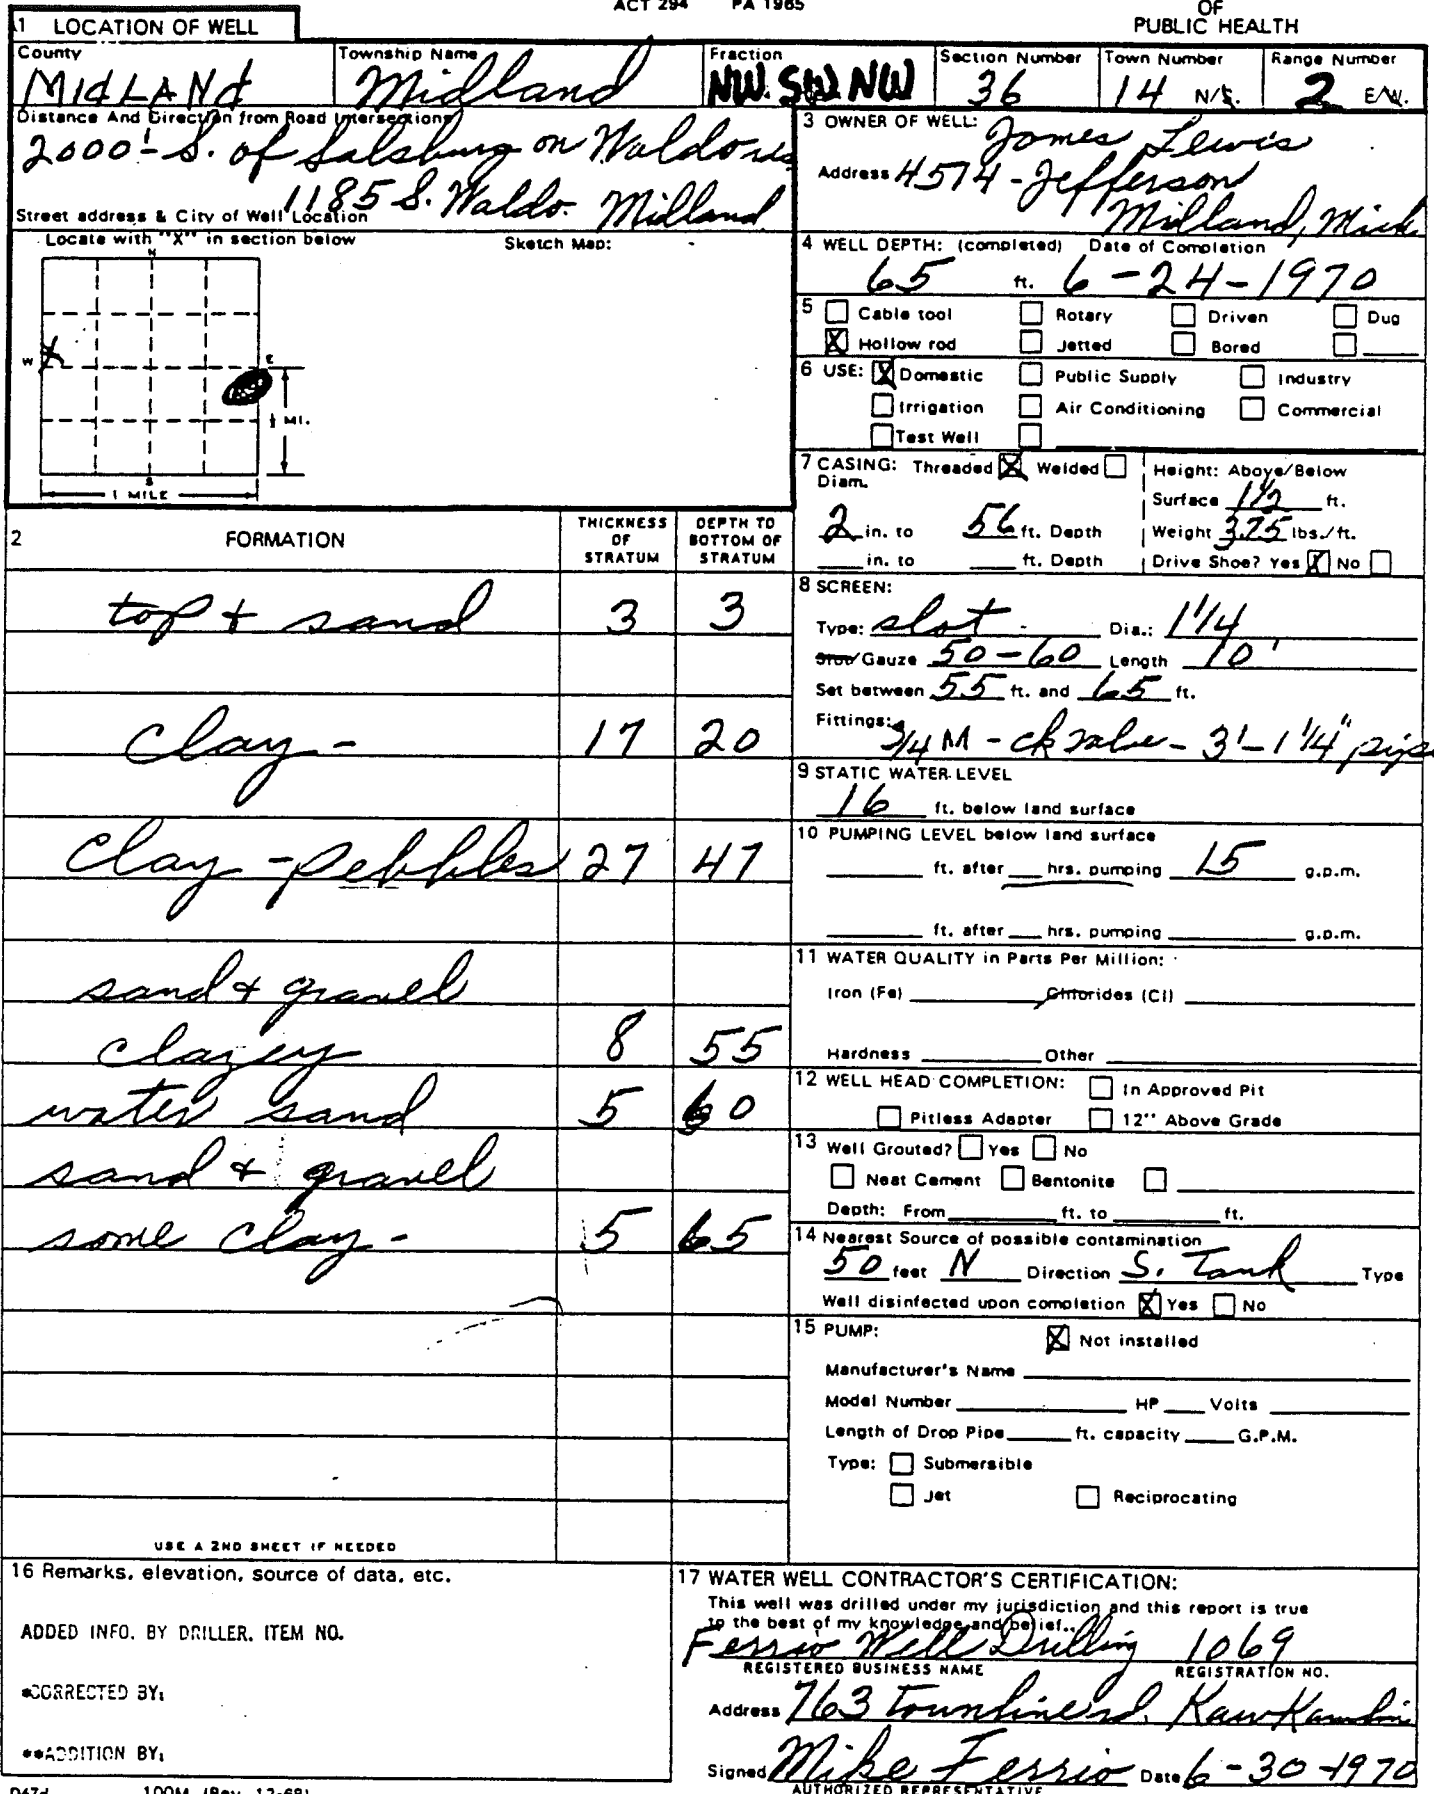 ACT 294 PA 1965
OF
PUBLIC HEALTH
1 LOCATION OF WELL
County
MIdLANd
Township Name
Midland
Fraction
NW. SW. NW
Section Number
36
Town Number
14 N/S.
Range Number
2 E/W.
Distance And Direction from Road Intersections
2000' S. of Salsburg on Waldo
1185 S. Waldo. Midland
Street address & City of Well Location
Locate with "X" in section below
Sketch Map:
N
W
X
E
S
½ MI.
1 MILE
3 OWNER OF WELL:
James Lewis
Address 4574 - Jefferson
Midland, Mich
4 WELL DEPTH: (completed) Date of Completion
65 ft. 6-24-1970
5 Cable tool Rotary Driven Dug
X Hollow rod Jetted Bored
6 USE: X Domestic Public Supply Industry
Irrigation Air Conditioning Commercial
Test Well
7 CASING: Threaded X Welded
Diam.
2 in. to 56 ft. Depth
in. to ft. Depth
Height: Above/Below
Surface 1½ ft.
Weight 3.75 lbs./ft.
Drive Shoe? Yes X No
2 FORMATION
THICKNESS OF STRATUM
DEPTH TO BOTTOM OF STRATUM
top + sand 3 3
clay - 17 20
clay - pebbles 27 47
sand + gravel
clayey 8 55
water sand 5 60
sand + gravel
some clay - 5 65
USE A 2ND SHEET IF NEEDED
8 SCREEN:
Type: slot Dia.: 1¼
Slot/Gauze 50-60 Length 10'
Set between 55 ft. and 65 ft.
Fittings:
3/4 M - ck valve - 3'-1¼" pipe
9 STATIC WATER LEVEL
16 ft. below land surface
10 PUMPING LEVEL below land surface
ft. after hrs. pumping 15 g.p.m.
ft. after hrs. pumping g.p.m.
11 WATER QUALITY in Parts Per Million:
Iron (Fe) Chlorides (Cl)
Hardness Other
12 WELL HEAD COMPLETION: In Approved Pit
Pitless Adapter 12" Above Grade
13 Well Grouted? Yes No
Neat Cement Bentonite
Depth: From ft. to ft.
14 Nearest Source of possible contamination
50 feet N Direction S. Tank Type
Well disinfected upon completion X Yes No
15 PUMP: X Not installed
Manufacturer's Name
Model Number HP Volts
Length of Drop Pipe ft. capacity G.P.M.
Type: Submersible
Jet Reciprocating
16 Remarks, elevation, source of data, etc.
ADDED INFO. BY DRILLER, ITEM NO.
*CORRECTED BY:
**ADDITION BY:
17 WATER WELL CONTRACTOR'S CERTIFICATION:
This well was drilled under my jurisdiction and this report is true
to the best of my knowledge and belief.
Ferrio Well Drilling 1069
REGISTERED BUSINESS NAME REGISTRATION NO.
Address 763 Townline rd. Kawkawlin
Signed Mike Ferrio Date 6-30-1970
AUTHORIZED REPRESENTATIVE
D67d 100M (Rev. 12-68)